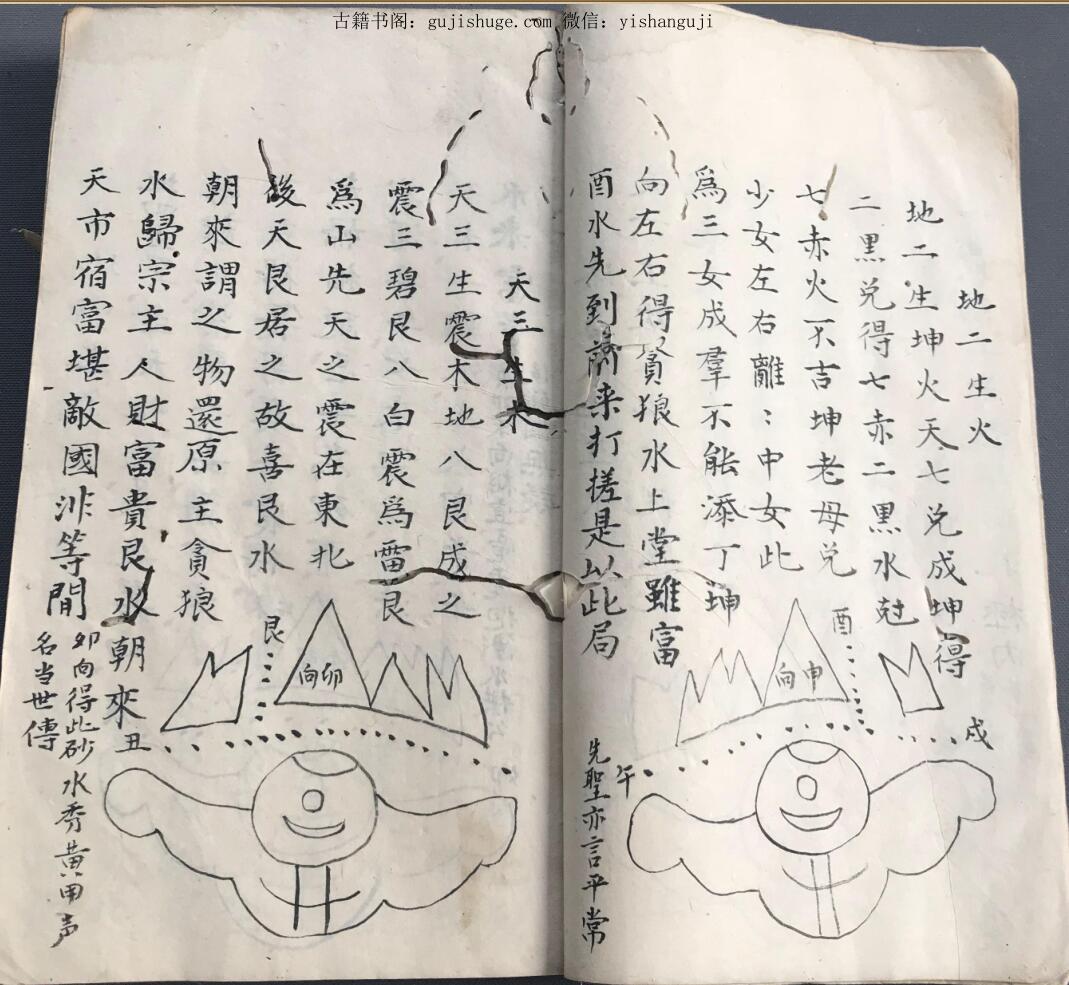 古籍书阁：gujishuge.com 微信：yishanguji
地二生火
地二生坤火天七兑成坤得
二黑兑得七赤二黑水尅
七赤火不吉坤老母兑
少女左右離：中女此
為三女成羣不能添丁坤
向左右得貧狼水上堂雖富
酉水先到 来打搓是以此局
先聖亦言平常
酉
向申
戌
午
天三生木
天三生震木地八艮成之
震三碧艮八白震爲雷艮
爲山先天之震在東北
後天艮居之故喜艮水
朝來謂之物還原主貪狼
水歸宗主人財富貴艮水朝來
天市宿富堪敵國非等閒
卯向得此砂水秀黄甲声
名当世傳
艮
向卯
丑